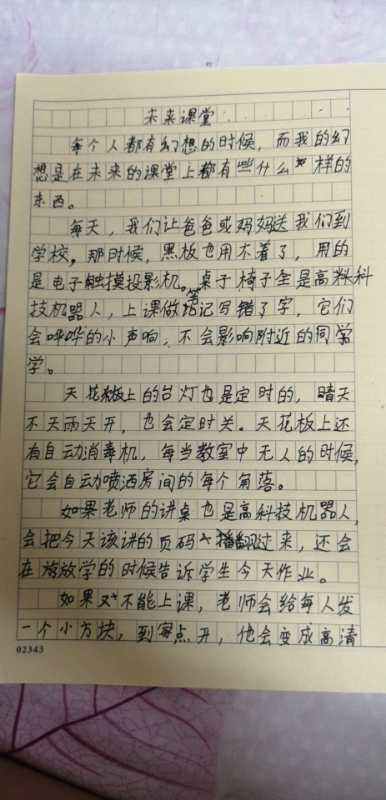 未来课堂
每个人都有幻想的时候，而我的幻
想是在未来的课堂上都有些什么样的
东西。
每天，我们让爸爸或妈妈送我们到
学校。那时候，黑板也用不着了，用的
是电子触摸投影机。桌子椅子全是高科
技机器人，上课做笔记写错了字，它们
会哔哔的小声响，不会影响附近的同学
学。
天花板上的台灯也是定时的，晴天
不天雨天开，也会定时关。天花板上还
有自动消毒机，每当教室中无人的时候，
它会自动喷洒房间的每个角落。
如果老师的讲桌也是高科技机器人，
会把今天该讲的页码翻过来，还会
在放学的时候告诉学生今天作业。
如果不能上课，老师会给每人发
一个小方块，到零点开，他会变成高清
02343